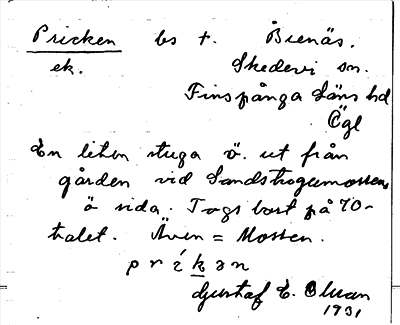 Pricken bs t. Brenäs.
ek. Skedevi sn.
Finspånga Läns hd
Ögl
En liten stuga ö. ut från
gården vid Sandstugumossens
ö sida. Togs bort på 70-
talet. Även = Mossen.
príkən
Gustaf E.
1931